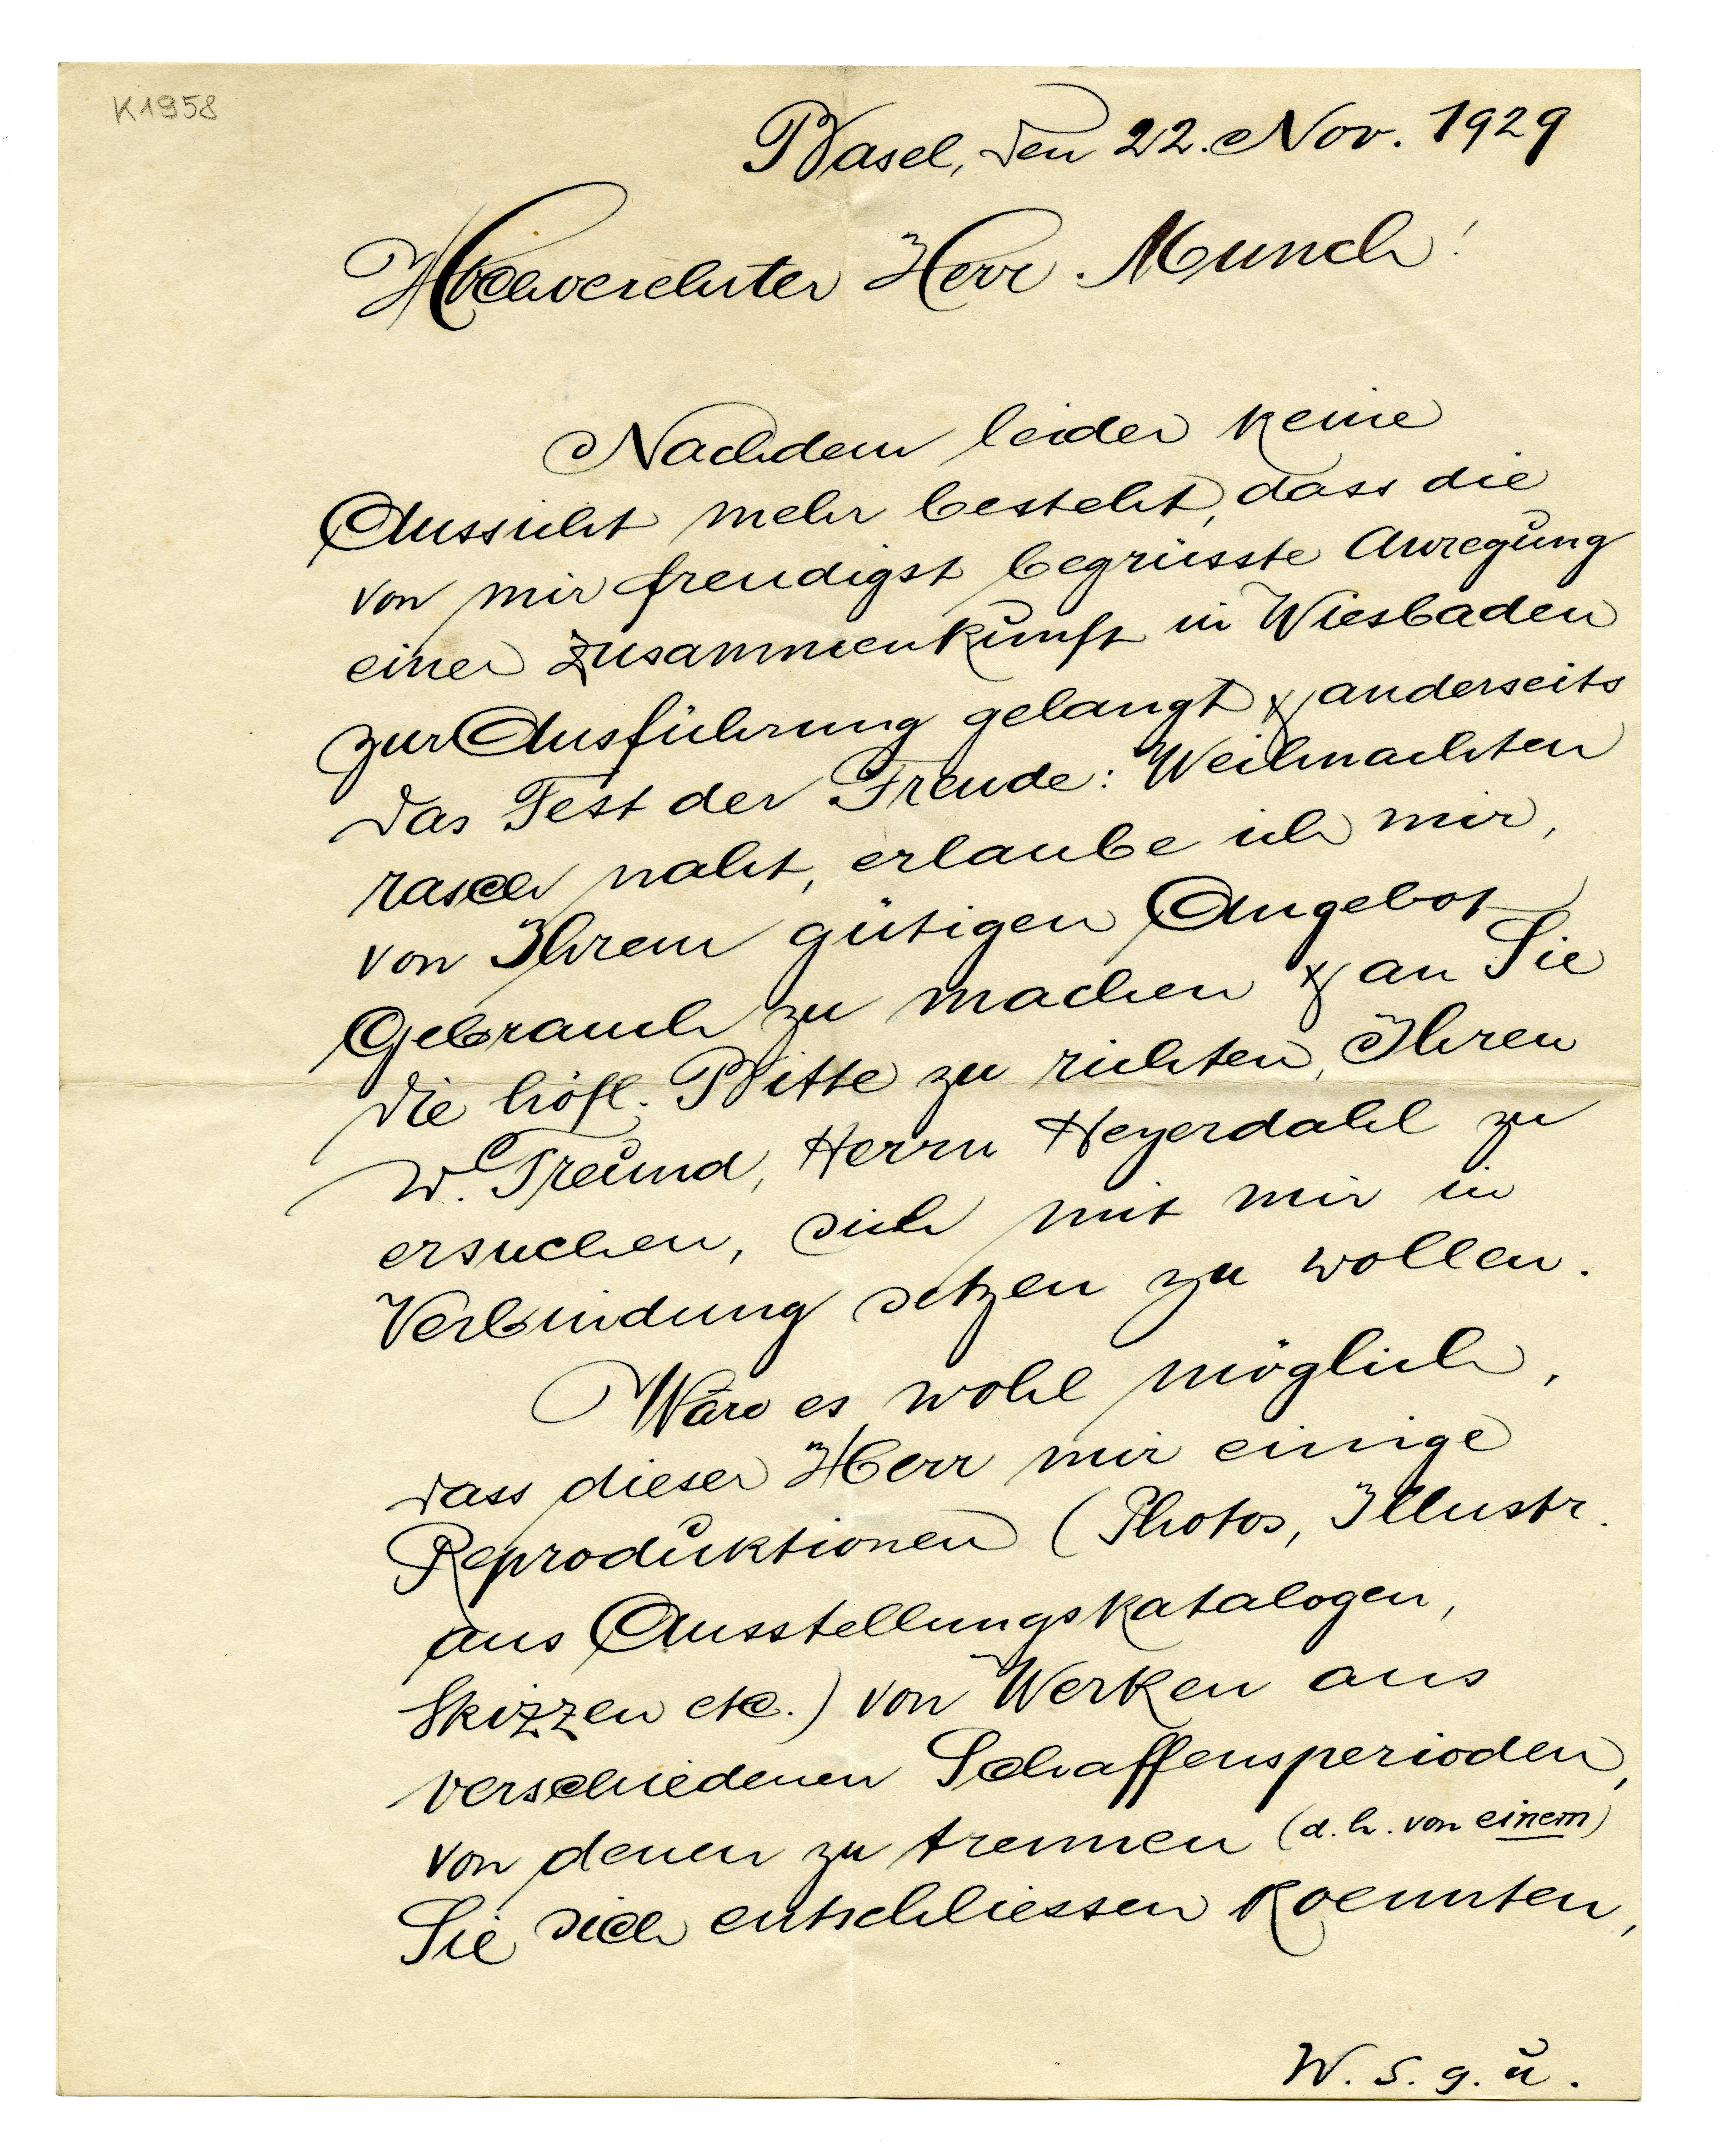 K 1958
Basel, den 22. Nov. 1929
Hochverehrter Herr Munch!
Nachdem leider keine
Aussicht mehr besteht, dass die
von mir freudigst begrüsste Anregung
einer Zusammenkunft in Wiesbaden
zur Ausführung gelangt & anderseits
das Fest der Freude: Weihnachten
rasch naht, erlaube ich mir,
von Ihrem gütigen Angebot
Gebrauch zu machen & an Sie
die höfl. Bitte zu richten, Ihren
w. Freund, Herrn Heyerdahl zu
ersuchen, sich mit mir in
Verbindung setzen zu wollen.
Wäre es wohl möglich,
dass dieser Herr mir einige
Reproduktionen (Photos, Illustr.
aus Ausstellungskatalogen,
Skizzen etc.) von Werken aus
verschiedenen Schaffensperioden,
von denen zu trennen (d. h. von einem)
Sie sich entschliessen koennten,
W. s. g. u.